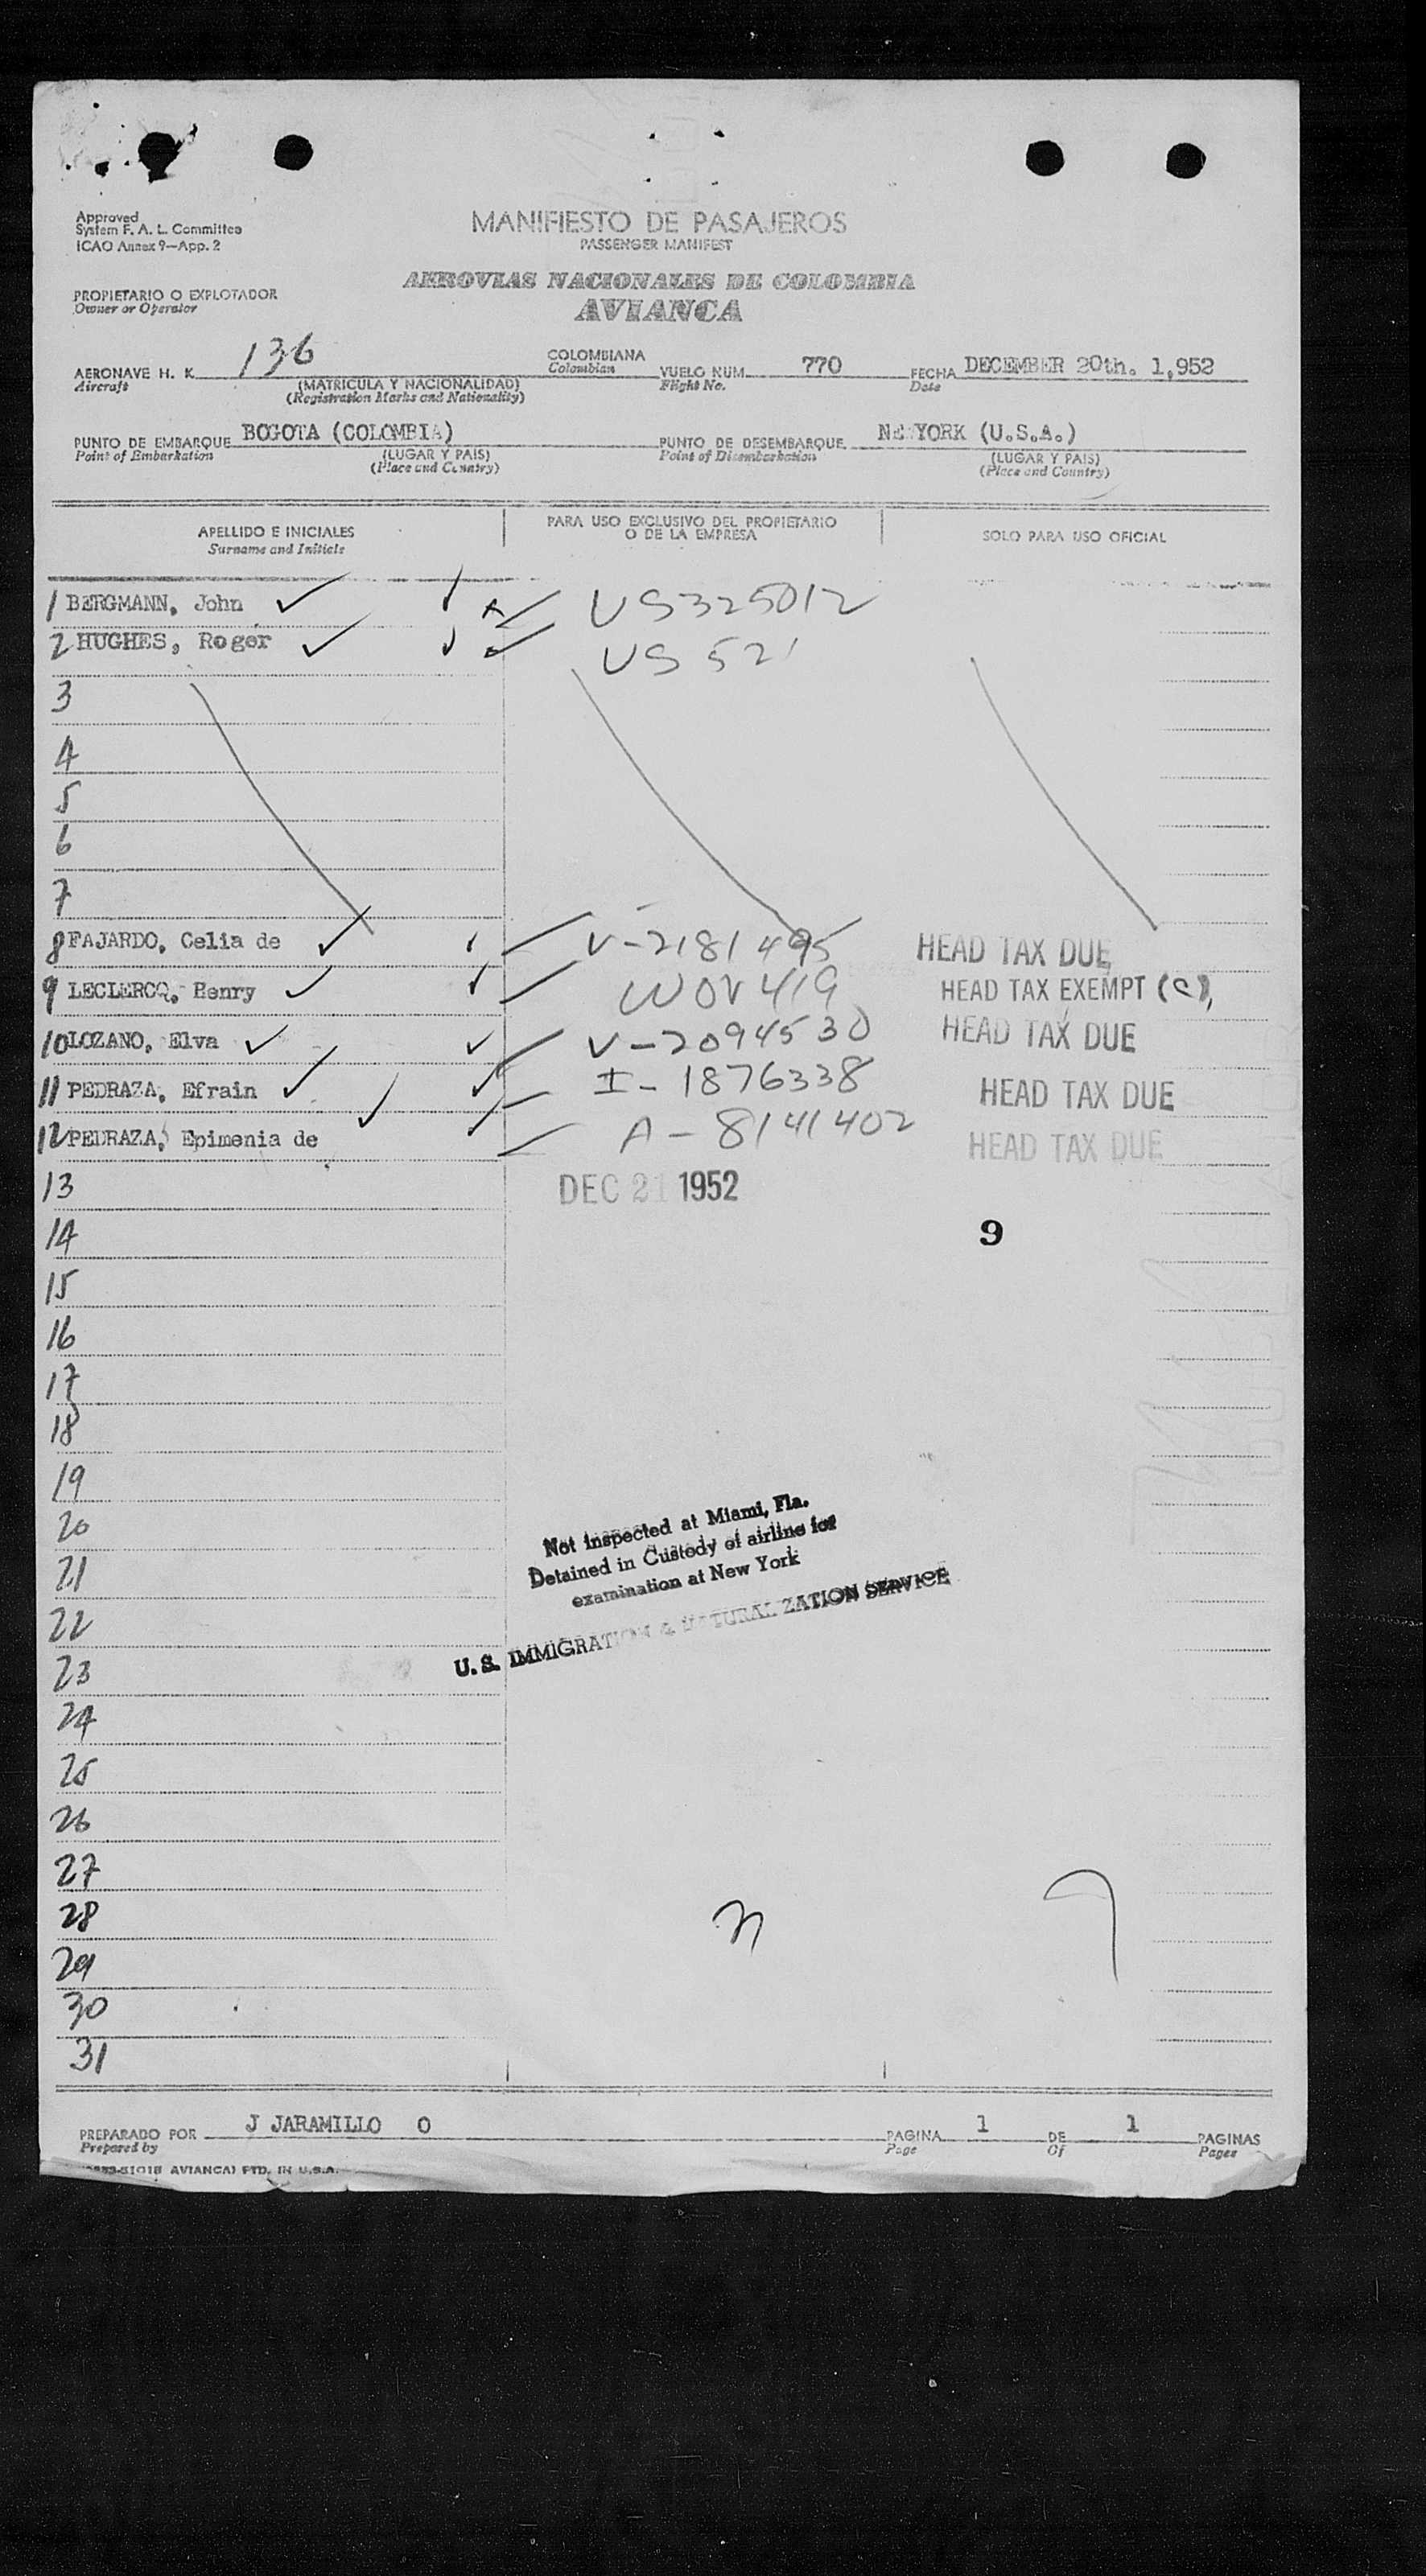 Approved
System F. A. L. Committee
ICAO Annex 9—App. 2
MANIFIESTO DE PASAJEROS
PASSENGER MANIFEST
AEROVIAS NACIONALES DE COLOMBIA
AVIANCA
PROPIETARIO O EXPLOTADOR
Owner or Operator
AERONAVE H. K. 136 COLOMBIANA VUELO NUM. 770 FECHA DECEMBER 20th. 1,952
Aircraft (MATRICULA Y NACIONALIDAD) Colombian Flight No. Date
(Registration Marks and Nationality)
PUNTO DE EMBARQUE BOGOTA (COLOMBIA) PUNTO DE DESEMBARQUE NE YORK (U.S.A.)
Point of Embarkation (LUGAR Y PAIS) Point of Disembarkation (LUGAR Y PAIS)
(Place and Country) (Place and Country)
APELLIDO E INICIALES PARA USO EXCLUSIVO DEL PROPIETARIO SOLO PARA USO OFICIAL
Surname and Initials O DE LA EMPRESA
1 BERGMANN, John US325012
2 HUGHES, Roger US 52
3
4
5
6
7
8 FAJARDO, Celia de V-2181495 HEAD TAX DUE
9 LECLERCQ, Henry HEAD TAX EXEMPT (C)
10 LOZANO, Elva V-2094530 HEAD TAX DUE
11 PEDRAZA, Efrain I-1876338 HEAD TAX DUE
12 PEDRAZA, Epimenia de A-8141402 HEAD TAX DUE
13 DEC 21 1952
14 9
15
16
17
18
19
20
21
22
23
24
25
26
27
28
29
30
31
Not inspected at Miami, Fla.
Detained in Custody of airline for
examination at New York
U.S. IMMIGRATION & NATURALIZATION SERVICE
PREPARADO POR J JARAMILLO O PAGINA 1 DE 1 PAGINAS
Prepared by Page Of Pages
AVIANCA) PTD. IN U.S.A.